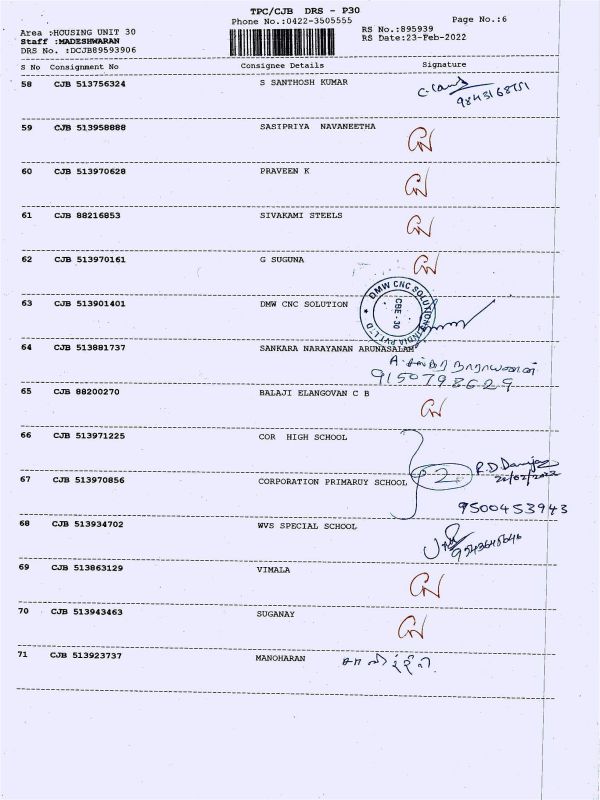 TPC/CJB DRS - P30
Phone No.:0422-3505555
Page No.:6
Area :HOUSING UNIT 30
Staff :MADESHWARAN
DRS No. :DCJB89593906
RS No.:895939
RS Date:23-Feb-2022
S No Consignment No Consignee Details Signature
58 CJB 513756324 S SANTHOSH KUMAR
59 CJB 513958888 SASIPRIYA NAVANEETHA
60 CJB 513970628 PRAVEEN K
61 CJB 88216853 SIVAKAMI STEELS
62 CJB 513970161 G SUGUNA
63 CJB 513901401 DMW CNC SOLUTION
DMW CNC SOLUTIONS INDIA PVT LTD
CBE - 30
64 CJB 513881737 SANKARA NARAYANAN ARUNASALAM
A. சங்கர நாராயணன்
9150798629
65 CJB 88200270 BALAJI ELANGOVAN C B
66 CJB 513971225 COR HIGH SCHOOL
67 CJB 513970856 CORPORATION PRIMARUY SCHOOL
2
9500453943
68 CJB 513934702 WVS SPECIAL SCHOOL
69 CJB 513863129 VIMALA
70 CJB 513943463 SUGANAY
71 CJB 513923737 MANOHARAN